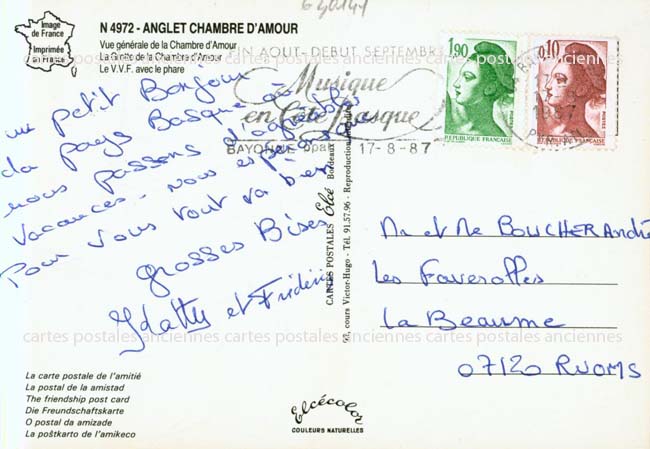 640141
Image
de France
Imprimée
en France
N 4972 - ANGLET CHAMBRE D'AMOUR
Vue générale de la Chambre d'Amour
La Grotte de la Chambre d'Amour
Le V.V.F. avec le phare
FIN AOUT-DEBUT SEPTEMBRE
Musique
en Côte Basque
BAYONNE ppal
17-8-87
1,90
RÉPUBLIQUE FRANÇAISE
0,10
RÉPUBLIQUE FRANÇAISE
1987
un petit Bonjour
du pays Basque où
nous passons d'agréables
vacances. Nous espérons que
Pour vous tout va bien
grosses Bises
et Frédéric
Mr et Me BOUCHER André
Les Faverolles
La Beaume
07120 RUOMS
CARTES POSTALES Elcé Bordeaux
cours Victor-Hugo - Tél. 91.57.96 - Reproduction
cartes postales anciennes cartes postales anciennes cartes postales anciennes
cartes postales anciennes cartes postales anciennes cartes postales anciennes
La carte postale de l'amitié
La postal de la amistad
The friendship post card
Die Freundschaftskarte
O postal da amizade
La poŝtkarto de l'amikeco
Elcécolor
COULEURS NATURELLES